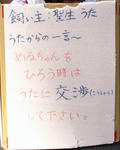 飼い主・聖生 うた
うたからの一言〜
めるちゃんを
ひろう時は
うたに交渉(こうしょう)
して下さい。